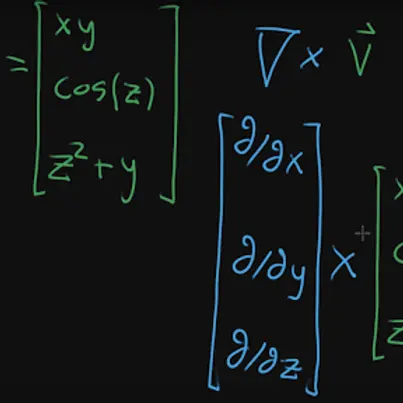 = [ xy
cos(z)
z² + y ]
∇ × V⃗
[ ∂/∂x
∂/∂y
∂/∂z ] × [
z